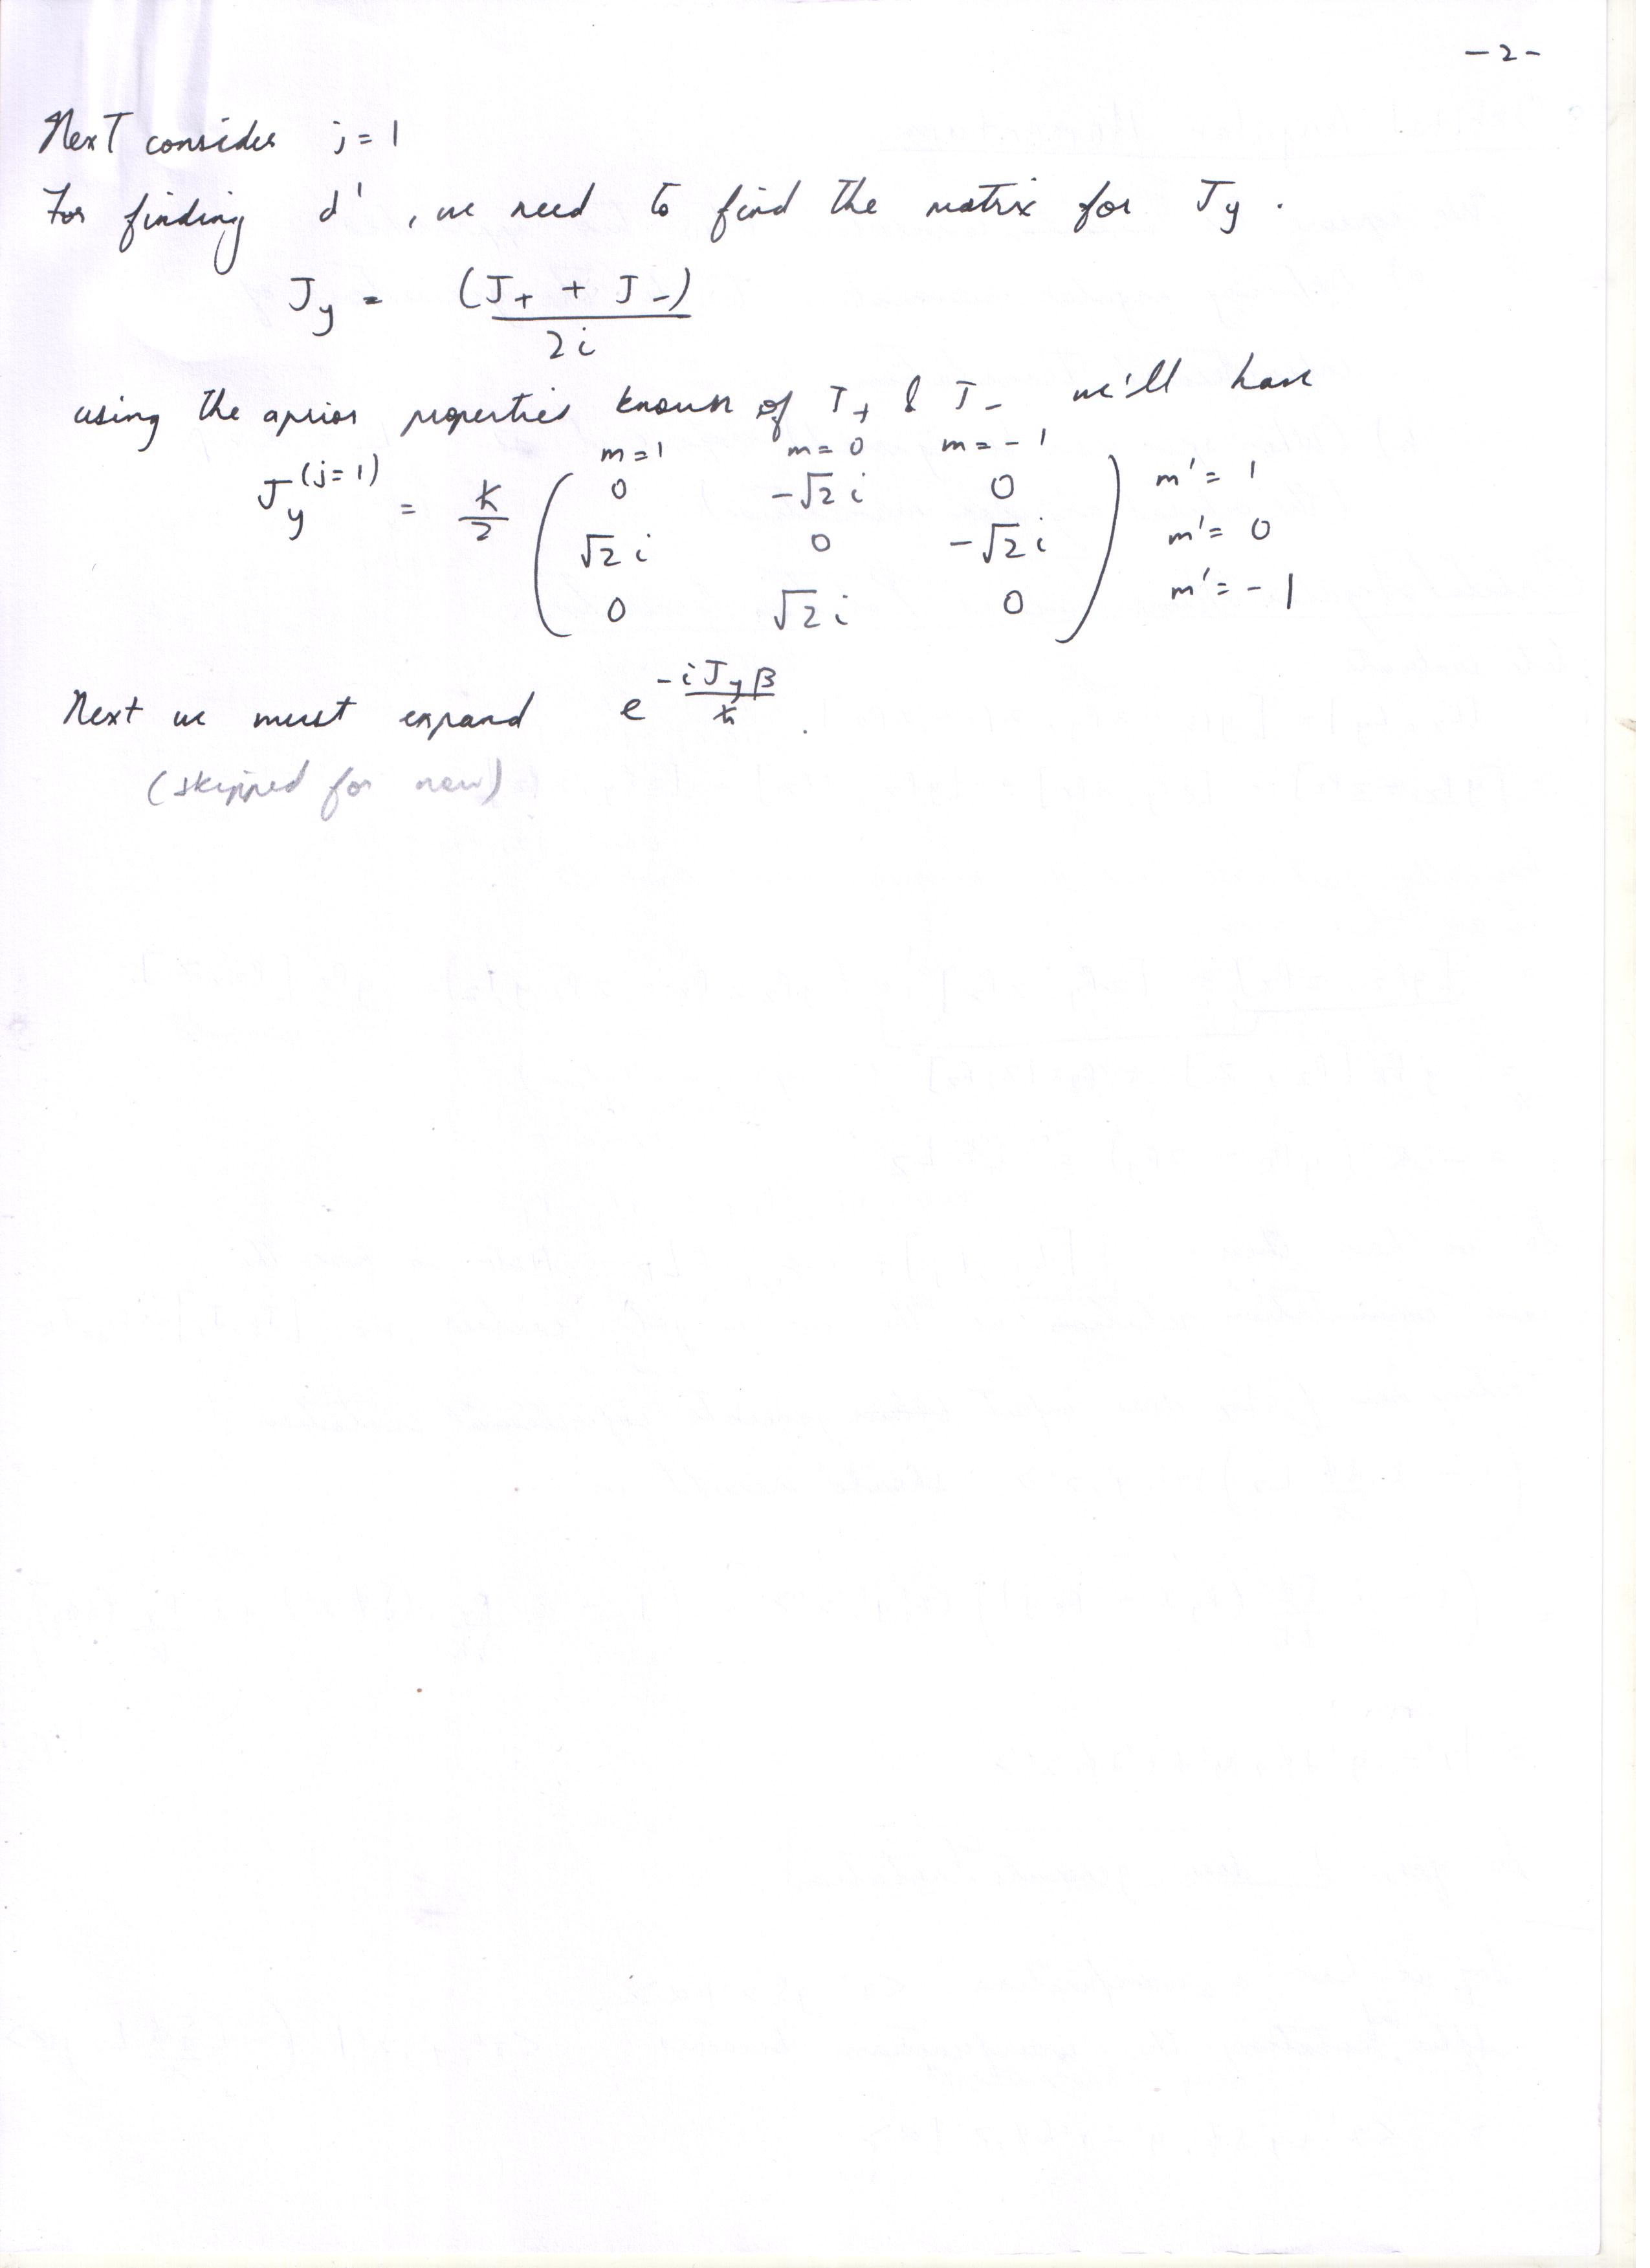 -2-
Next consider j = 1
For finding d¹, we need to find the matrix for J_y.
J_y = (J_+ + J_-) / 2i
using the aprior properties known of J_+ & J_- we'll have
m=1 m=0 m=-1
J_y^(j=1) = ħ/2 ( 0 -√2 i 0 ) m' = 1
( √2 i 0 -√2 i ) m' = 0
( 0 √2 i 0 ) m' = -1
Next we must expand e^(-i J_y β / ħ).
(skipped for now)